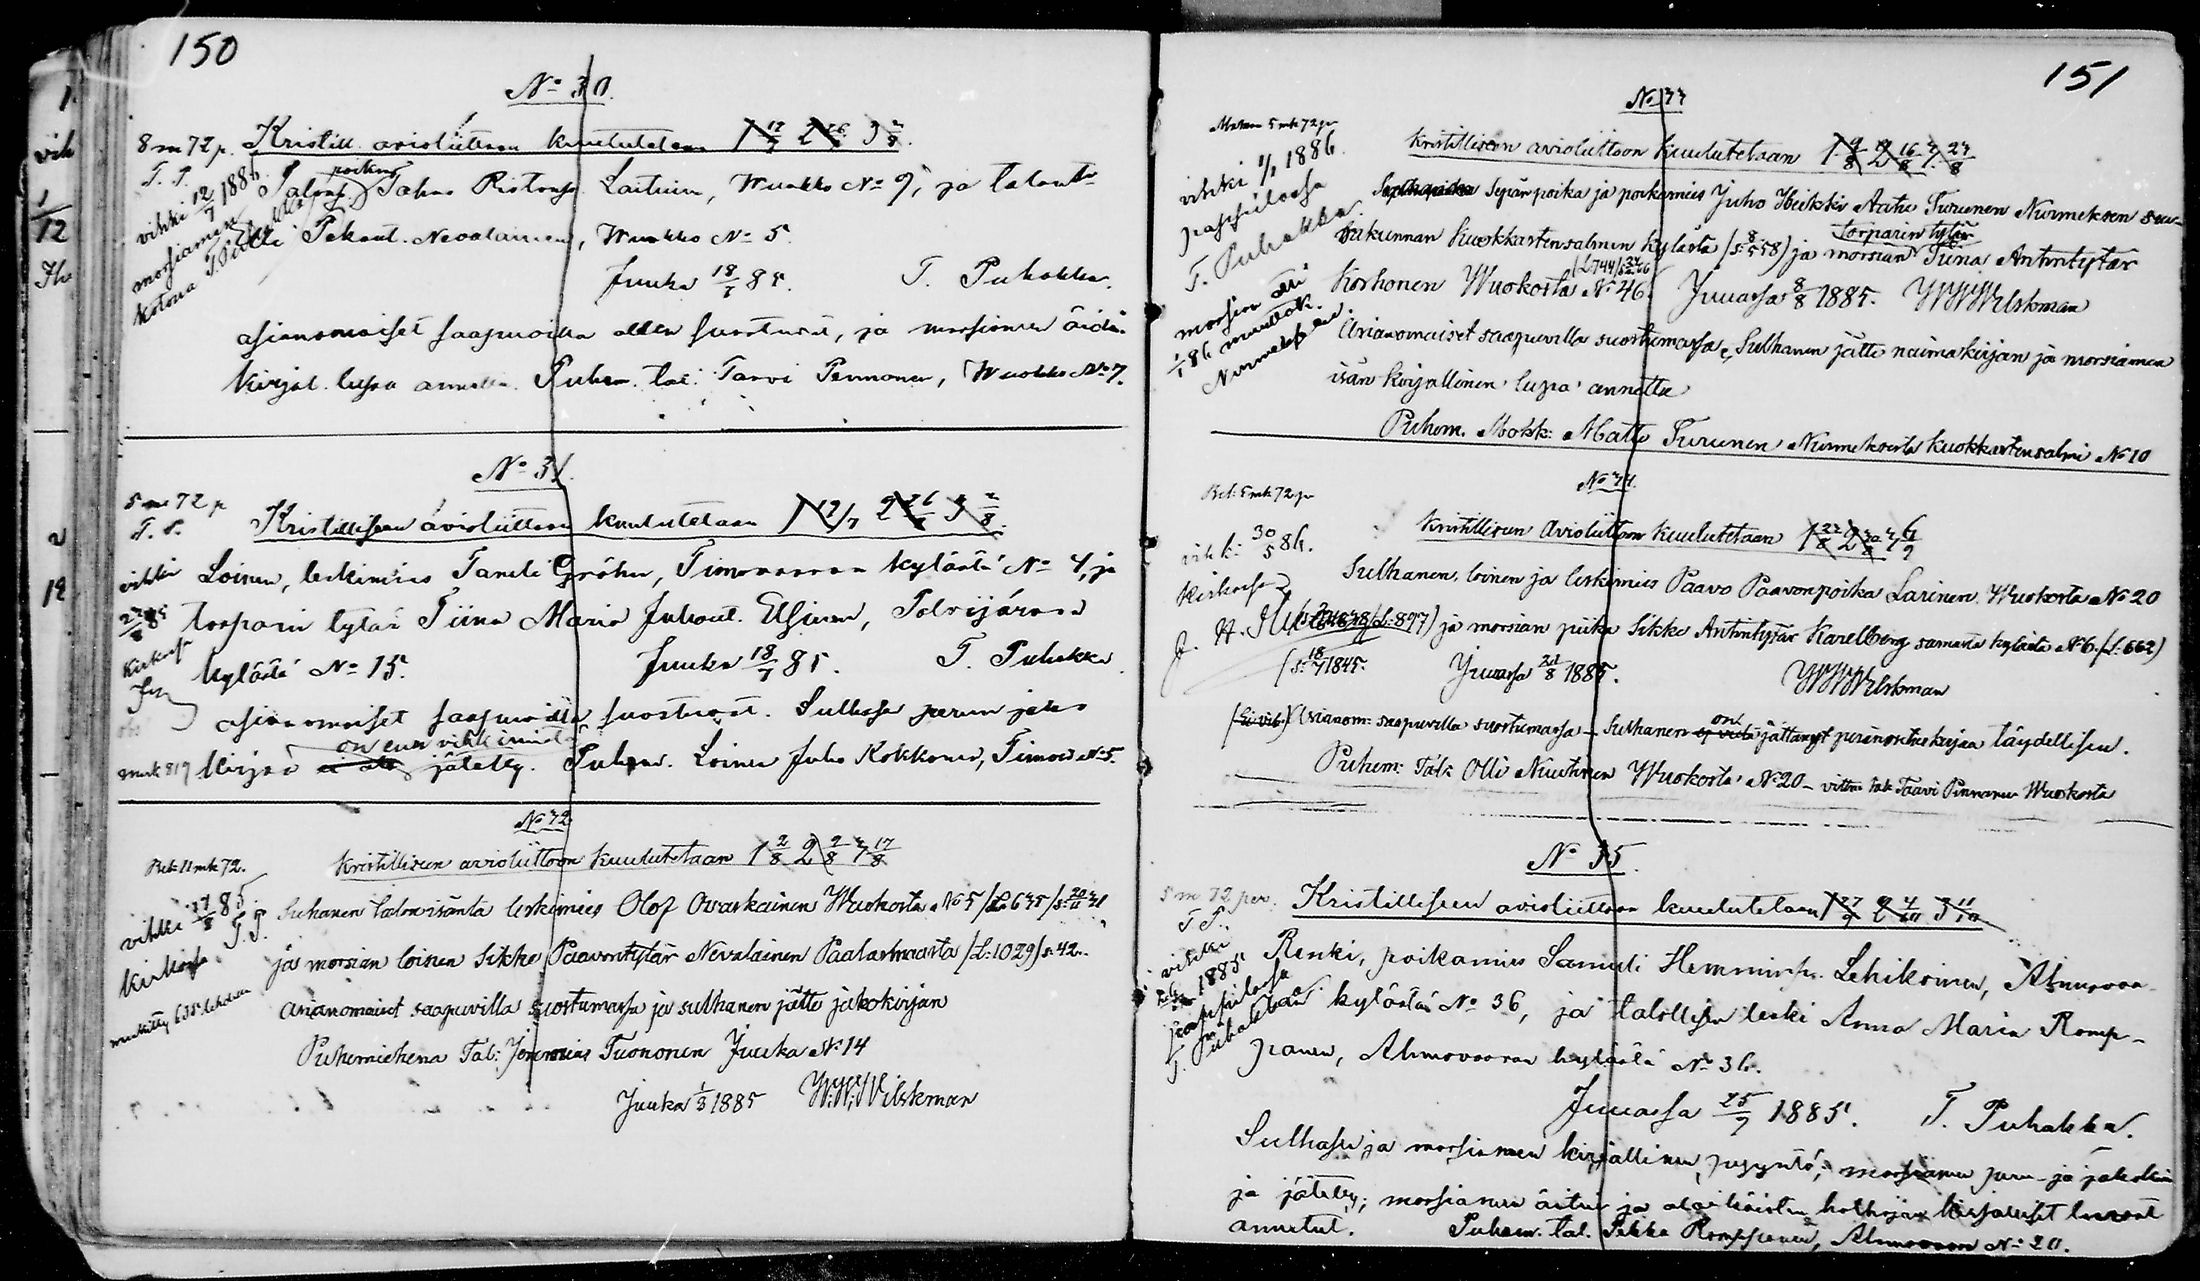 150
No 30.
8 m 72 p. Kristill. avioliittoon kuulutetaan 1 12/7 2 26/7 3 2/8.
T. P.
vihki 12/7 1886
morsiamen
kotona T. Puhakka
poika
Talons. Tahvo Ristonp. Laitinen, Wuokko No 9, ja talont.
Pekant. Nevalainen, Wuokko No 5.
Juuka 18/7 85. T. Puhakka.
asianomaiset saapuvilla ollen suostuvat, ja morsiamen äidin
kirjal. lupa annettu. Puhem. tal. Taavi Pennanen, Wuokko No 7.
No 31
5 m 72 p
T. P.
Kristilliseen avioliittoon kuulutetaan 1 19/7 2 26/7 3 2/8.
vihki
Loinen, leskimies Taneli Gröhn, Timovaaran kylästä No 4, ja
torparin tytär Tiina Maria Juhont. Elsinen, Polvijärven
kylästä No 15. Juuka 18/7 85. T. Puhakka
asianomaiset saapuvilla suostuvat. Sulhasen perun jako
on ennen vihkimistä
kirja jätetty. Puhem. Loinen Juho Kokkonen, Timov. No 5.
No 32
Bet. 11 mk 72.
Kristilliseen avioliittoon kuulutetaan 1 2/8 2 9/8 3 17/8
vihki 17/8 85
kirkossa T. P.
Sulhanen talonisäntä leskimies Olof Ovaskainen Wuokosta No 5 /L. 635/
ja morsian loinen Sikke Paavontytär Nevalainen Paalasmaasta /L: 1029/ s. 42.
asianomaiset saapuvilla suostumassa ja sulhanen jätti jakokirjan
Puhemiehenä Tal: Jeremias Tuononen Juuka No 14
Juuka 1/8 1885 W.W. Wilskman
151
No 33
Maksu 5 mk 72 p
vihki 1/1 1886
pappilassa
T. Puhakka.
Kristilliseen avioliittoon kuulutetaan 1 9/8 2 16/8 3 23/8
Sepänpoika ja poikamies Juho Heikki Aatu Turunen Nurmeksen seu-
Torparin tytär
rakunnan Kuokkastensalmen kylästä /s. 8/5 58) ja morsian Tiina Antintytär
Korhonen Wuokosta No 46. Juuassa 8/8 1885. W.W. Wilskman
morsian otti
1/1 86 muutok.
Nurmekseen.
Asianomaiset saapuvilla suostumassa, Sulhanen jätti naimakirjan ja morsiamen
isän kirjallinen lupa annettu
Puhem. Mökk: Matti Turunen Nurmeksesta Kuokkastensalmi No 10
No 34.
Bet: 5 mk 72 p
Kristilliseen Avioliittoon kuulutetaan 1 23/8 2 30/8 3 6/9
vihk: 30/5 86.
kirkossa
Sulhanen, loinen ja leskimies Paavo Paavonpoika Larinen Wuokosta No 20
L: 897) ja morsian piika Sikke Antintytär Karelberg samasta kylästä No 6. (L: 662)
(s. 18/7 1845. Juuassa 21/8 1885. W.W. Wilskman
(Ei vih.) Asianom: saapuvilla suostumassa - Sulhanen on jättänyt perinöitsikirjaa täydellisen.
Puhem: Talk Olli Nuutinen Wuokosta No 20 - Taavi Pinnanen Wuokosta
No 35.
5 m 72 pen.
T. P.
Kristilliseen avioliittoon kuulutetaan 1 27/9 2 4/10 3 11/10
vihki
1885
pappilassa
T. Puhakka
Renki, poikamies Samuli Hemminp. Lehikoinen, Ahmovaa-
ran kylästä No 36, ja talollisen leski Anna Maria Romp-
panen, Ahmovaaran kylästä No 36.
Juuassa 25/9 1885. T. Puhakka.
Sulhasen ja morsiamen kirjallinen pyyntö, morsiamen peru- ja jakokir-
ja jätetty; morsiamen äitin ja alaikäisten holhojan kirjalliset luvat
annetut. Puhem. tal. Pekka Romppanen, Ahmovaara No 20.